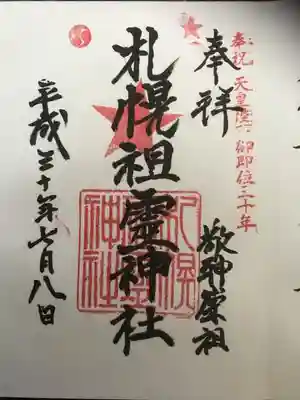 奉祝 天皇陛下御即位三十年
奉拝
敬神崇祖
札幌祖靈神社
平成三十年七月八日
札幌祖霊神社